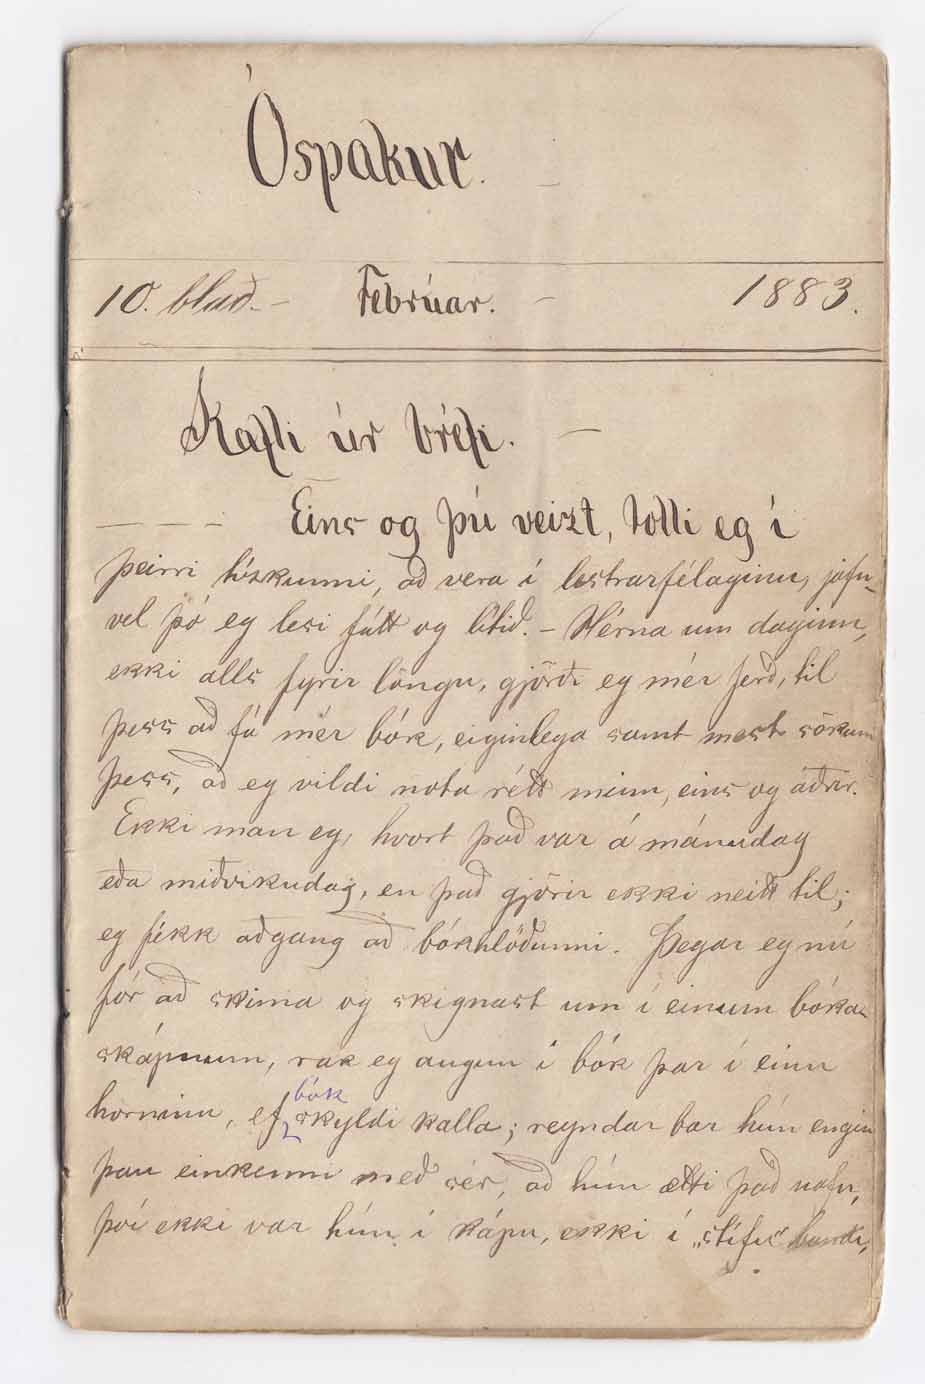 Óspakur.
10. blað. – Febrúar. – 1883.
Kafli úr bréfi. –
– – – Eins og þú veizt, tolli eg í
þeirri tízkunni, að vera í lestrarfélaginu, jafn-
vel þó eg lesi fátt og lítið. – Hérna um daginn,
ekki alls fyrir löngu, gjörði eg mér ferð, til
þess að fá mér bók, eiginlega samt mest sökum
þess, að eg vildi nota rétt minn, eins og aðrir.
Ekki man eg, hvort það var á mánudag
eða miðvikudag, en það gjörir ekki neitt til;
eg fékk aðgang að bókhlöðunni. Þegar eg nú
fór að skima og skignast um í einum bóka-
skápnum, rak eg augun í bók þar í einu
horninu, ef bók skyldi kalla; reyndar bar hún engin
þau einkenni með sér, að hún ætti það nafn,
því ekki var hún í kápu, ekki í „stífu“ bandi,